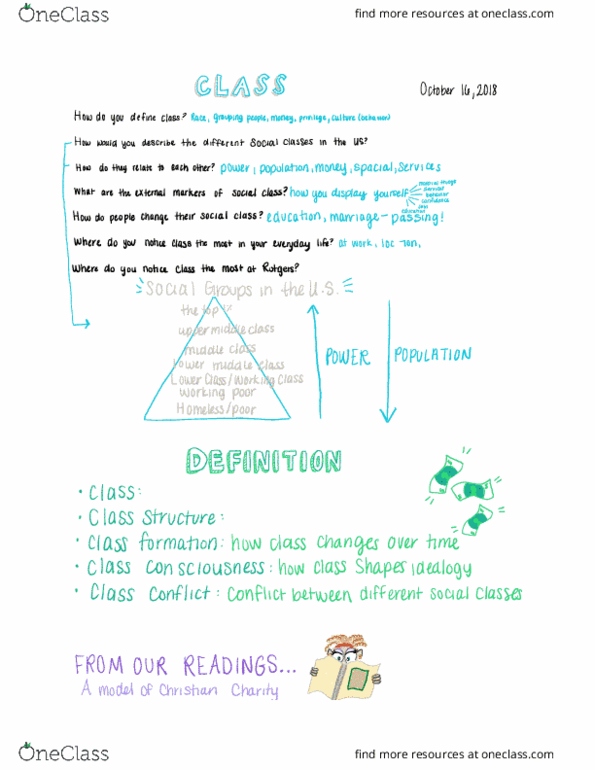 OneClass
find more resources at oneclass.com
CLASS
October 16, 2018
How do you define class? Race, grouping people, money, privilege, culture (behavior)
How would you describe the different social classes in the US?
How do they relate to each other? power, population, money, spacial, services
What are the external markers of social class? how you display yourself
material things
behavior
confidence
education
How do people change their social class? education, marriage - passing!
Where do you notice class the most in your everyday life? at work,
Where do you notice class the most at Rutgers?
Social Groups in the U.S.
the top
upper middle class
middle class
lower middle class
Lower Class/Working Class
working poor
Homeless/poor
POWER
POPULATION
DEFINITION
• Class:
• Class Structure:
• Class formation: how class changes over time
• Class Consciousness: how class shapes idealogy
• Class Conflict: Conflict between different social classes
FROM OUR READINGS...
A model of Christian Charity
OneClass
find more resources at oneclass.com